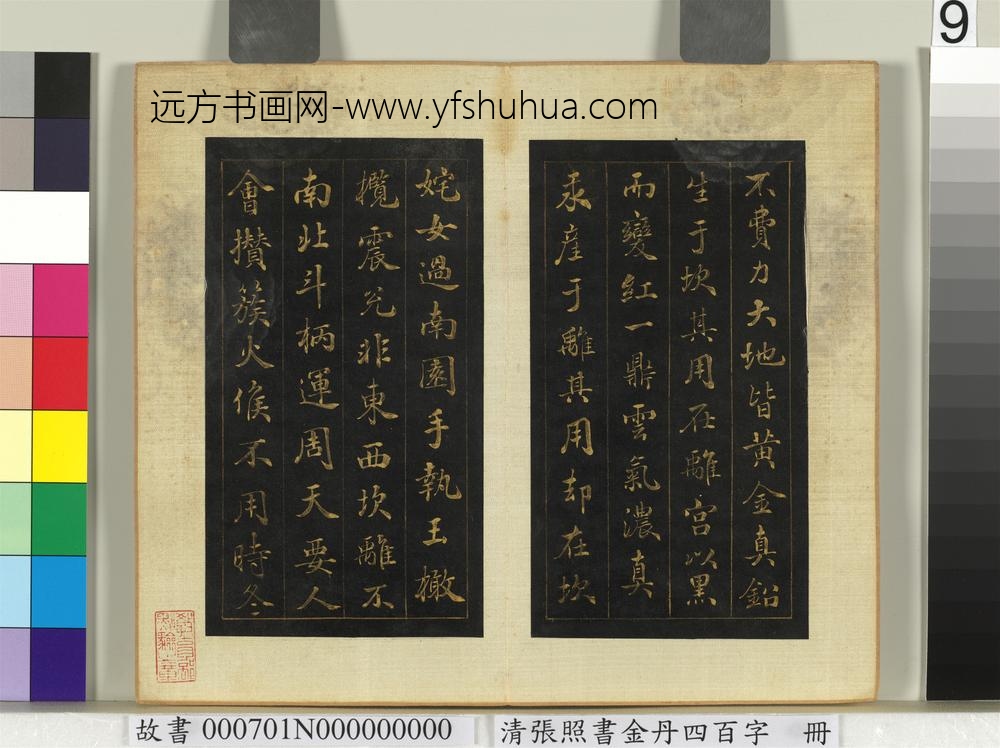 9
远方书画网-www.yfshuhua.com
不費力大地皆黄金真鉛
生于坎其用在離宫以黑
而變紅一鼎雲氣濃真
汞産于離其用却在坎
姹女過南園手執玉橄
欖震兊非東西坎離不
南北斗柄運周天要人
會攅簇火候不用時冬
故書 000701N000000000
清張照書金丹四百字 冊